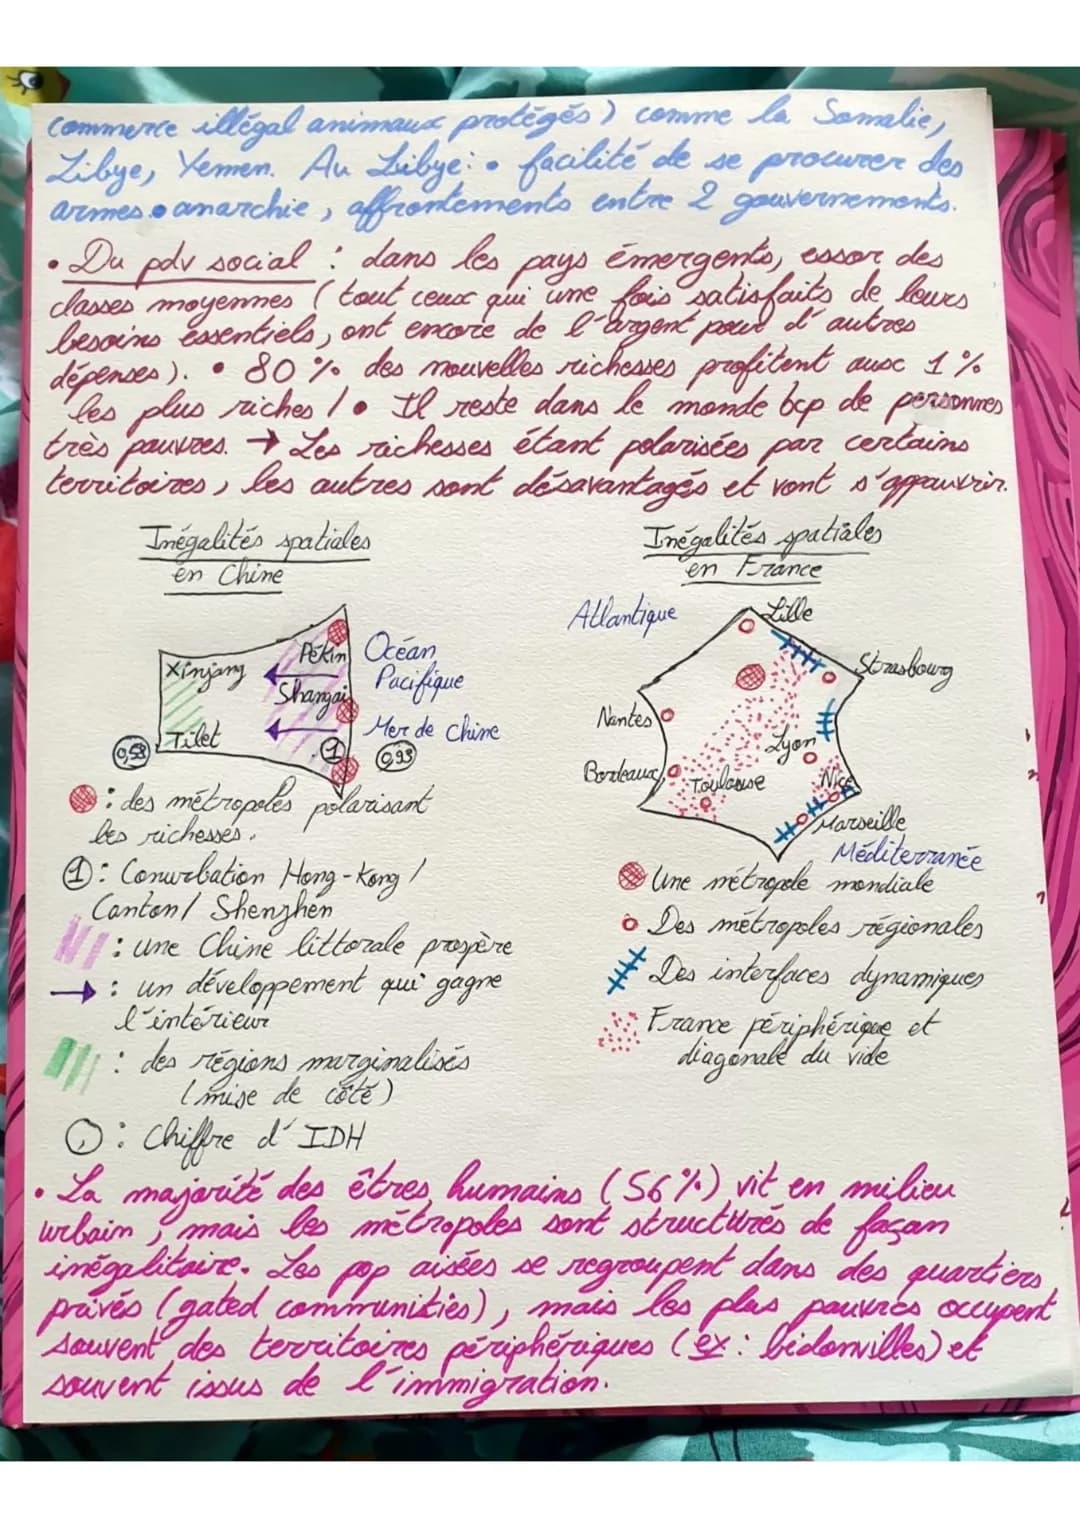 commerce illégal animaux protégés) comme la Somalie,
Libye, Yemen. Au Libye: • facilité de se procurer des
armes • anarchie, affrontements entre 2 gouvernements.
• Du pdv social : dans les pays émergents, essor des
classes moyennes (tout ceux qui une fois satisfaits de leurs
besoins essentiels, ont encore de l'argent pour d'autres
dépenses). • 80 % des nouvelles richesses profitent aux 1 %
les plus riches ! • Il reste dans le monde bcp de personnes
très pauvres. → Les richesses étant polarisées par certains
territoires, les autres sont désavantagés et vont s'appauvrir.
Inégalités spatiales
en Chine
Xinjang
Pékin
Shangai
Tilet
0,58
1
0,93
Océan
Pacifique
Mer de Chine
: des métropoles polarisant
les richesses.
1 : Conurbation Hong-Kong /
Canton / Shenzhen
: une Chine littorale prospère
→ : un développement qui gagne
l'intérieur
: des régions marginalisés
(mise de côté)
, : Chiffre d'IDH
Inégalités spatiales
en France
Atlantique
Lille
Strasbourg
Nantes
Lyon
Bordeaux
Toulouse
Nice
Marseille
Méditerranée
Une métropole mondiale
Des métropoles régionales
Des interfaces dynamiques
France périphérique et
diagonale du vide
• La majorité des êtres humains (56%) vit en milieu
urbain, mais les métropoles sont structurés de façon
inégalitaire. Les pop aisées se regroupent dans des quartiers
privés (gated communities), mais les plus pauvres occupent
souvent des territoires périphériques (ex : bidonvilles) et
souvent issus de l'immigration.